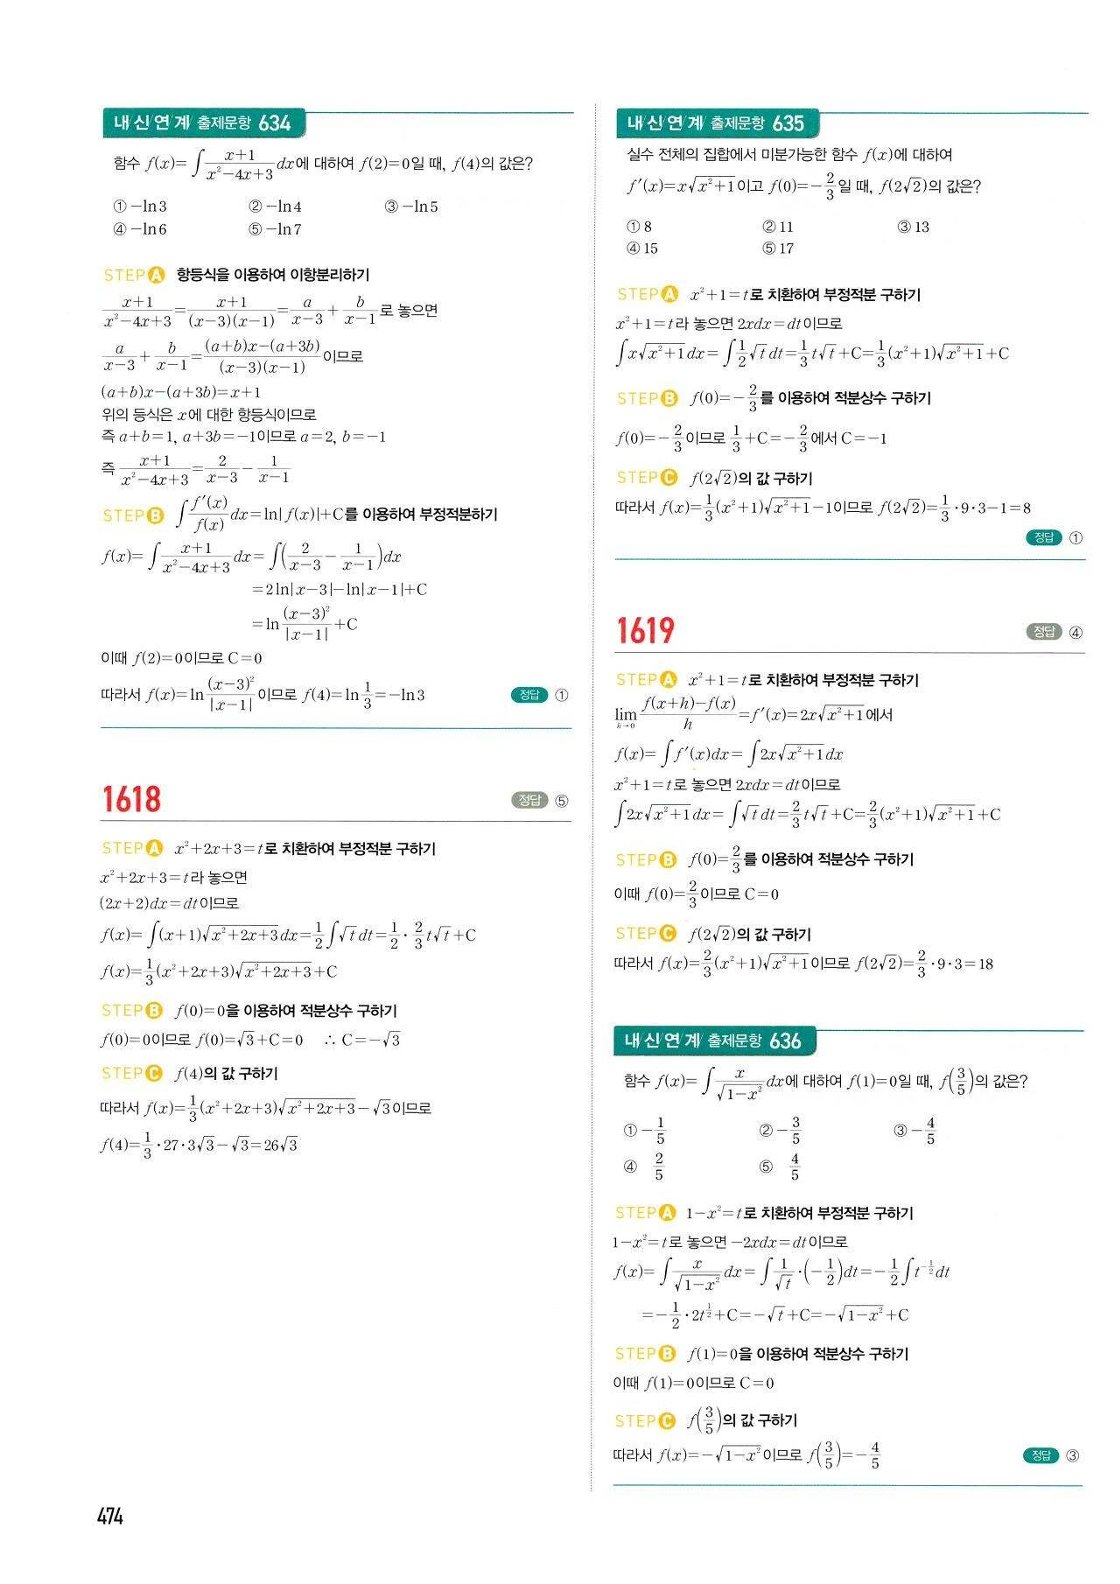 내신연계 출제문항 634
함수 f(x)=∫(x+1)/(x²-4x+3) dx에 대하여 f(2)=0일 때, f(4)의 값은?
① -ln3 ② -ln4 ③ -ln5
④ -ln6 ⑤ -ln7
STEP A 항등식을 이용하여 이항분리하기
(x+1)/(x²-4x+3)=(x+1)/((x-3)(x-1))=a/(x-3)+b/(x-1)로 놓으면
a/(x-3)+b/(x-1)=((a+b)x-(a+3b))/((x-3)(x-1))이므로
(a+b)x-(a+3b)=x+1
위의 등식은 x에 대한 항등식이므로
즉 a+b=1, a+3b=-1이므로 a=2, b=-1
즉 (x+1)/(x²-4x+3)=2/(x-3)-1/(x-1)
STEP B ∫f′(x)/f(x) dx=ln|f(x)|+C를 이용하여 부정적분하기
f(x)=∫(x+1)/(x²-4x+3) dx=∫(2/(x-3)-1/(x-1))dx
=2ln|x-3|-ln|x-1|+C
=ln (x-3)²/|x-1|+C
이때 f(2)=0이므로 C=0
따라서 f(x)=ln (x-3)²/|x-1|이므로 f(4)=ln 1/3=-ln3 정답 ①
1618 정답 ⑤
STEP A x²+2x+3=t로 치환하여 부정적분 구하기
x²+2x+3=t라 놓으면
(2x+2)dx=dt이므로
f(x)=∫(x+1)√(x²+2x+3) dx=1/2∫√t dt=1/2·2/3 t√t+C
f(x)=1/3(x²+2x+3)√(x²+2x+3)+C
STEP B f(0)=0을 이용하여 적분상수 구하기
f(0)=0이므로 f(0)=√3+C=0 ∴ C=-√3
STEP C f(4)의 값 구하기
따라서 f(x)=1/3(x²+2x+3)√(x²+2x+3)-√3이므로
f(4)=1/3·27·3√3-√3=26√3
474
내신연계 출제문항 635
실수 전체의 집합에서 미분가능한 함수 f(x)에 대하여
f′(x)=x√(x²+1)이고 f(0)=-2/3일 때, f(2√2)의 값은?
① 8 ② 11 ③ 13
④ 15 ⑤ 17
STEP A x²+1=t로 치환하여 부정적분 구하기
x²+1=t라 놓으면 2xdx=dt이므로
∫x√(x²+1) dx=∫1/2√t dt=1/3 t√t+C=1/3(x²+1)√(x²+1)+C
STEP B f(0)=-2/3를 이용하여 적분상수 구하기
f(0)=-2/3이므로 1/3+C=-2/3에서 C=-1
STEP C f(2√2)의 값 구하기
따라서 f(x)=1/3(x²+1)√(x²+1)-1이므로 f(2√2)=1/3·9·3-1=8
정답 ①
1619 정답 ④
STEP A x²+1=t로 치환하여 부정적분 구하기
lim h→0 (f(x+h)-f(x))/h=f′(x)=2x√(x²+1)에서
f(x)=∫f′(x)dx=∫2x√(x²+1) dx
x²+1=t로 놓으면 2xdx=dt이므로
∫2x√(x²+1) dx=∫√t dt=2/3 t√t+C=2/3(x²+1)√(x²+1)+C
STEP B f(0)=2/3를 이용하여 적분상수 구하기
이때 f(0)=2/3이므로 C=0
STEP C f(2√2)의 값 구하기
따라서 f(x)=2/3(x²+1)√(x²+1)이므로 f(2√2)=2/3·9·3=18
내신연계 출제문항 636
함수 f(x)=∫x/√(1-x²) dx에 대하여 f(1)=0일 때, f(3/5)의 값은?
① -1/5 ② -3/5 ③ -4/5
④ 2/5 ⑤ 4/5
STEP A 1-x²=t로 치환하여 부정적분 구하기
1-x²=t로 놓으면 -2xdx=dt이므로
f(x)=∫x/√(1-x²) dx=∫1/√t·(-1/2)dt=-1/2∫t^(-1/2)dt
=-1/2·2t^(1/2)+C=-√t+C=-√(1-x²)+C
STEP B f(1)=0을 이용하여 적분상수 구하기
이때 f(1)=0이므로 C=0
STEP C f(3/5)의 값 구하기
따라서 f(x)=-√(1-x²)이므로 f(3/5)=-4/5 정답 ③